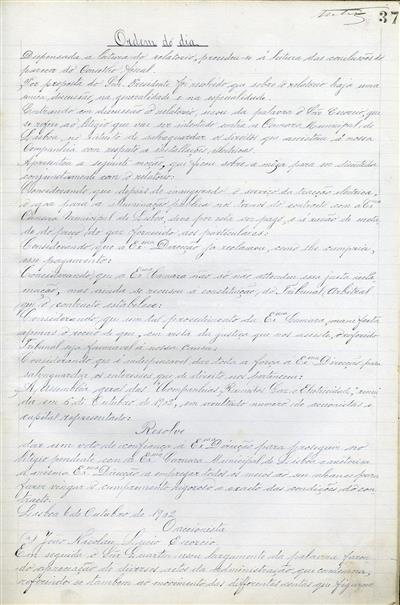 37
Ordem do dia
Dispensada a leitura do relatorio, procedeu-se á leitura das conclusões do
parecer do Conselho Fiscal.
Por proposta do Snr. Presidente foi resolvido que sobre o relatorio haja uma
unica discussão, na generalidade e na especialidade.
Entrando em discussão o relatorio, usou da palavra o Snr Escorcio, que
se refere ao litigio que vae ser intentado contra a Camara Municipal de
Lisboa, no intuito de salvaguardar os direitos que assistem á nossa
Companhia com respeito a installações electricas.
Apresentou a seguinte moção, que ficou sobre a meza para ser discutida
conjunctamente com o relatorio:
Considerando que depois de inaugurado o serviço da tracção electrica,
o gaz para a illuminação publica nos termos do contracto com a Exma
Camara Municipal de Lisboa, deve por este ser pago, e á razão de metade
do preço do gaz fornecido aos particulares:
Considerando que a Exma Direcção já reclamou, como lhe cumpria,
esse pagamento:
Considerando que a Exma Camara não só não attendeu essa justa recla-
mação, mas ainda se recusou á constituição, do Tribunal Arbitral
que o contracto estabelece:
Considerando, que um tal procedimento da Exma Camara, manifesta
apenas o receio de que, em vista da justiça que nos assiste, o referido
Tribunal seja favoravel á nossa causa:
Considerando que é indispensavel dar toda a força á Exma Direcção para
salvaguardar os interesses que de direito nos pertencem:
A Assembléa geral das "Companhias Reunidas Gaz e Electricidade," reuni
da em 6 de Outubro de 1902, em avultado numero de accionistas e
capital representado:
Resolve
dar um voto de confiança á Exma Direcção para proseguir no
litigio pendente com a Exma Camara Municipal de Lisboa e auctorisa
a mesma Exma Direcção a empregar todos os meios ao seu alcance para
fazer vingar o cumprimento rigoroso e exacto das condições do con
tracto.
Lisboa 6 de Outubro de 1902
O accionista
(a) João Nicolau Lucio Escorcio.
Em seguida o Snr Quartin usou largamente da palavra fazen
do apreciação de diversos actos da administração que censurou,
referindo-se tambem ao movimento das differentes contas que figuram